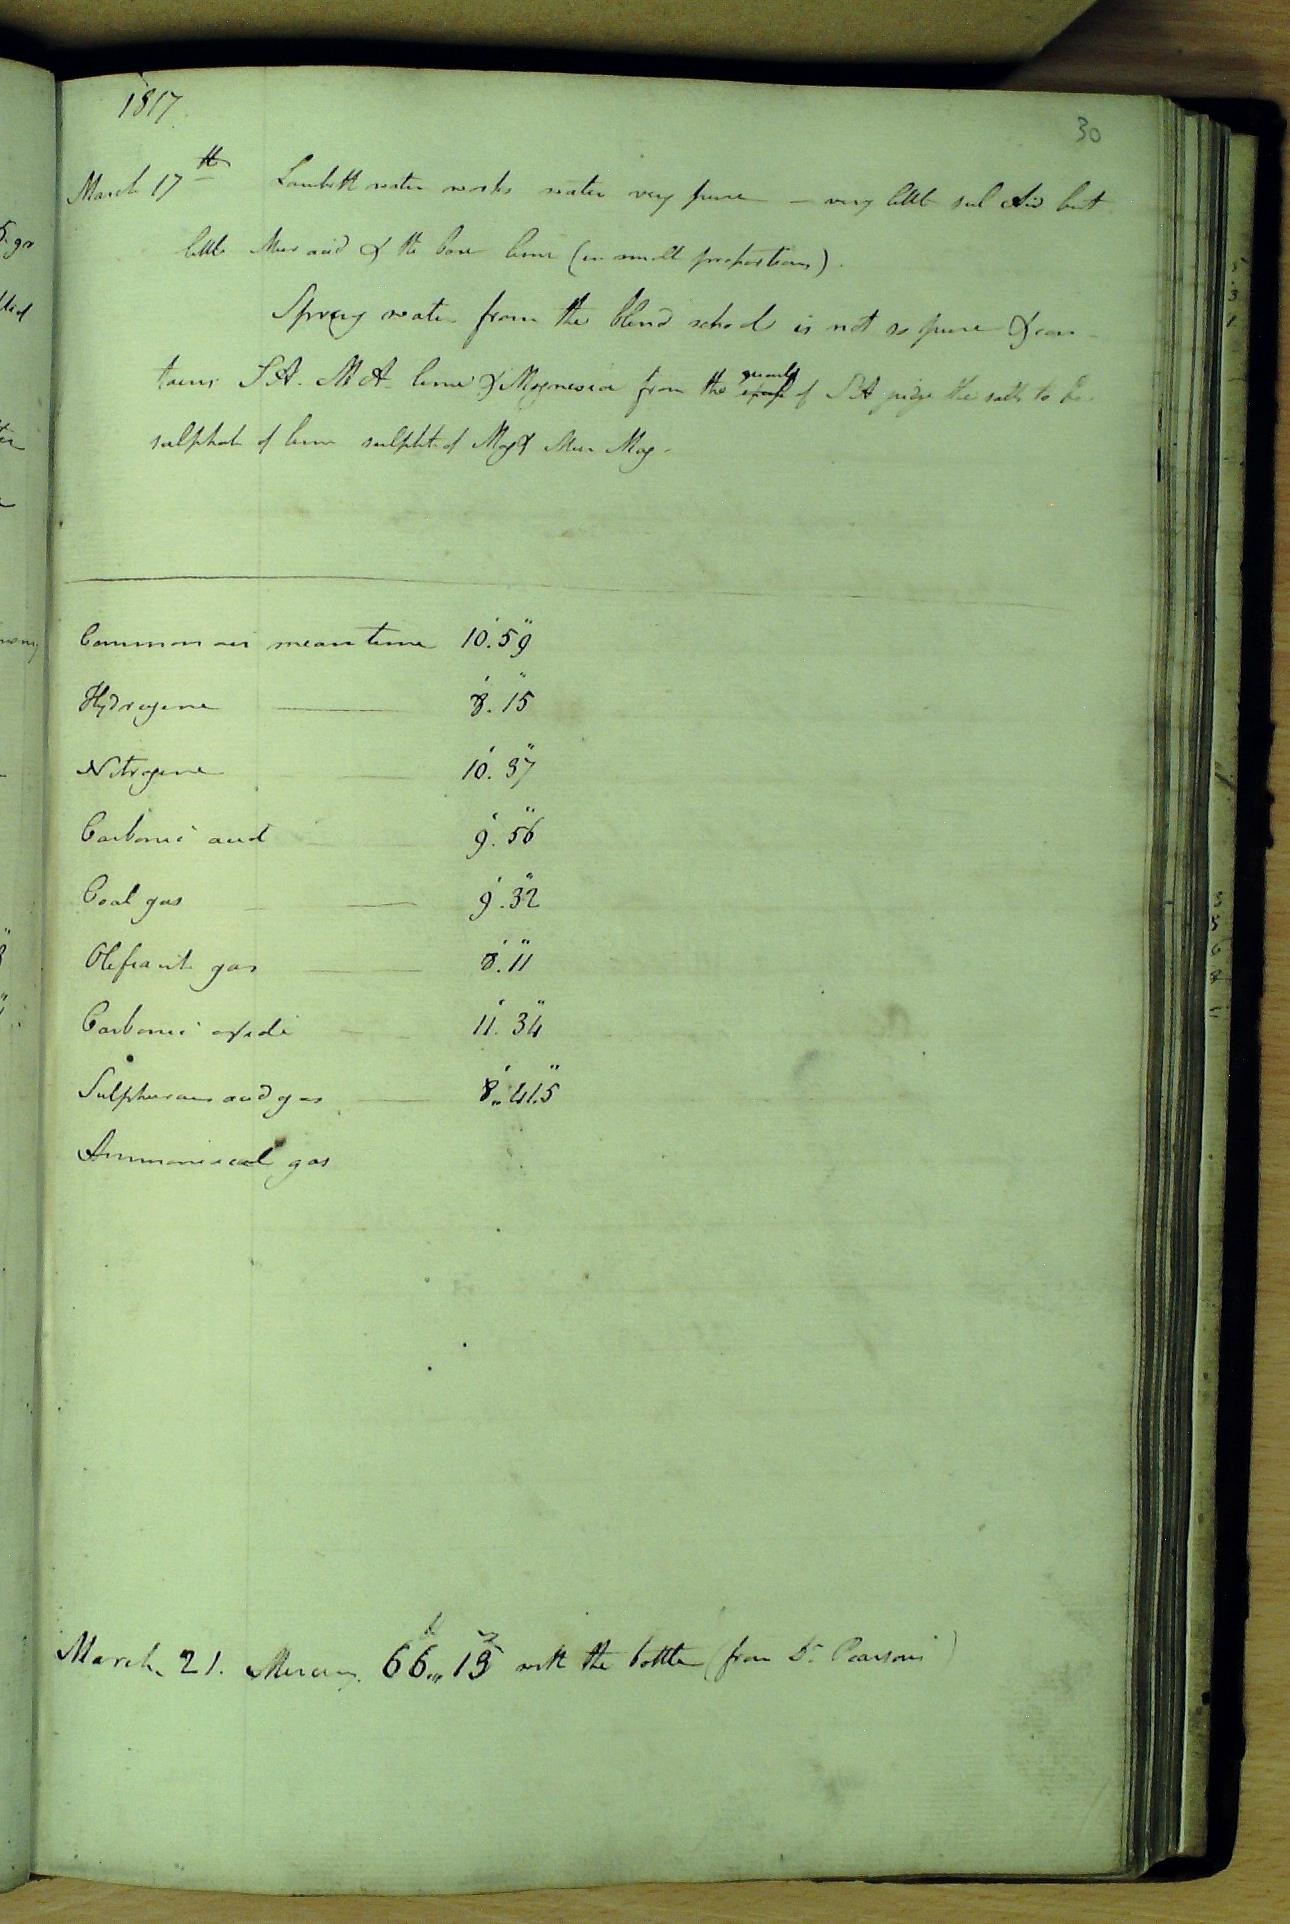 1817
30
March 17th Lambeth water works water very pure – very little sul Acid but
little Mur acid & the base lime (in small proportions).
Spring water from the blind school is not so pure & con-
tains S A. M A. lime & Magnesia from the quanty of S A judge the salts to be
sulphate of lime sulphte of Mag & Mur Mag -
Common air mean time 10'. 59"
Hydrogene 8'. 15"
Nitrogene 10'. 37"
Carbonic acid 9'. 56"
Coal gas 9'. 32"
Olefiant gas 8'. 11"
Carbonic oxide 11'. 34"
Sulphurous acid gas 8'. 41.5"
Ammoniacal gas
March 21. Mercury 66 with the bottle (from Dr Pearson)